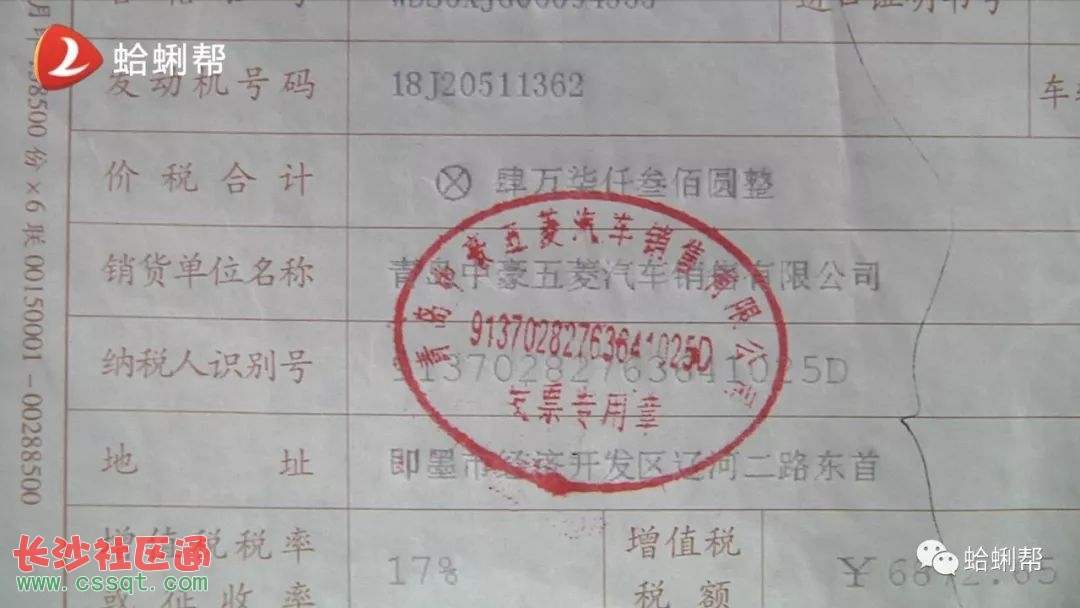 蛤蜊帮
发动机号码 18J20511362
价税合计 ⊗ 肆万柒仟叁佰圆整
销货单位名称 青岛中豪五菱汽车销售有限公司
纳税人识别号 91370282763641025D
地址 即墨市经济开发区辽河二路东首
增值税税率 17% 增值税
或征收率 税额 ¥6872.65
00150001-00288500
青岛中豪五菱汽车销售有限公司
91370282763641025D
发票专用章
长沙社区通
www.cssqt.com
蛤蜊帮